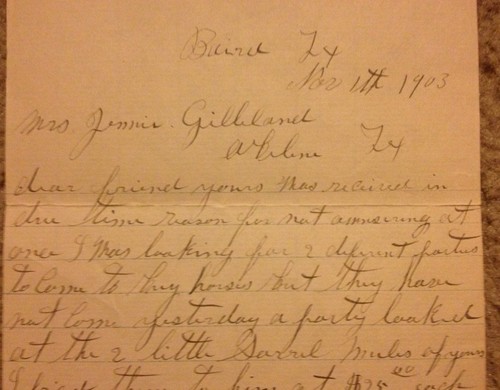 Baird Tx
Nov 1th 1903
Mrs Jennie Gilleland
Abilene Tx
dear friend yours was recieved in
due time reason for not answering at
once I was looking for 2 diferent parties
to Come to buy horses but they have
not Come yesterday a party looked
at the 2 little Sorrel mules of yours
I them to him at $25.00 each